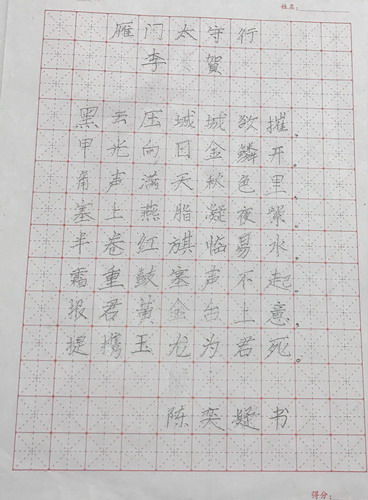 姓名:
雁门太守行
李贺
黑云压城城欲摧,
甲光向日金鳞开。
角声满天秋色里,
塞上燕脂凝夜紫。
半卷红旗临易水,
霜重鼓塞声不起。
报君黄金台上意,
提携玉龙为君死。
陈奕疑书
得分: